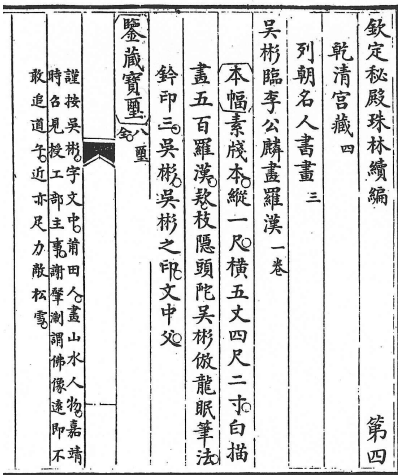 欽定秘殿珠林續編 第四
乾清宮藏四
列朝名人書畫三
吳彬臨李公麟畫羅漢一卷
本幅素牋本縱一尺橫五丈四尺二寸白描
畫五百羅漢欵枝隱頭陀吳彬倣龍眠筆法
鈐印三吳彬吳彬之印文中父
鑒藏寶璽八璽全
謹按吳彬字文中莆田人畫山水人物嘉靖
時召見授工部主事謝肇淛謂佛像遠即不
敢追道子近亦足力敵松雪